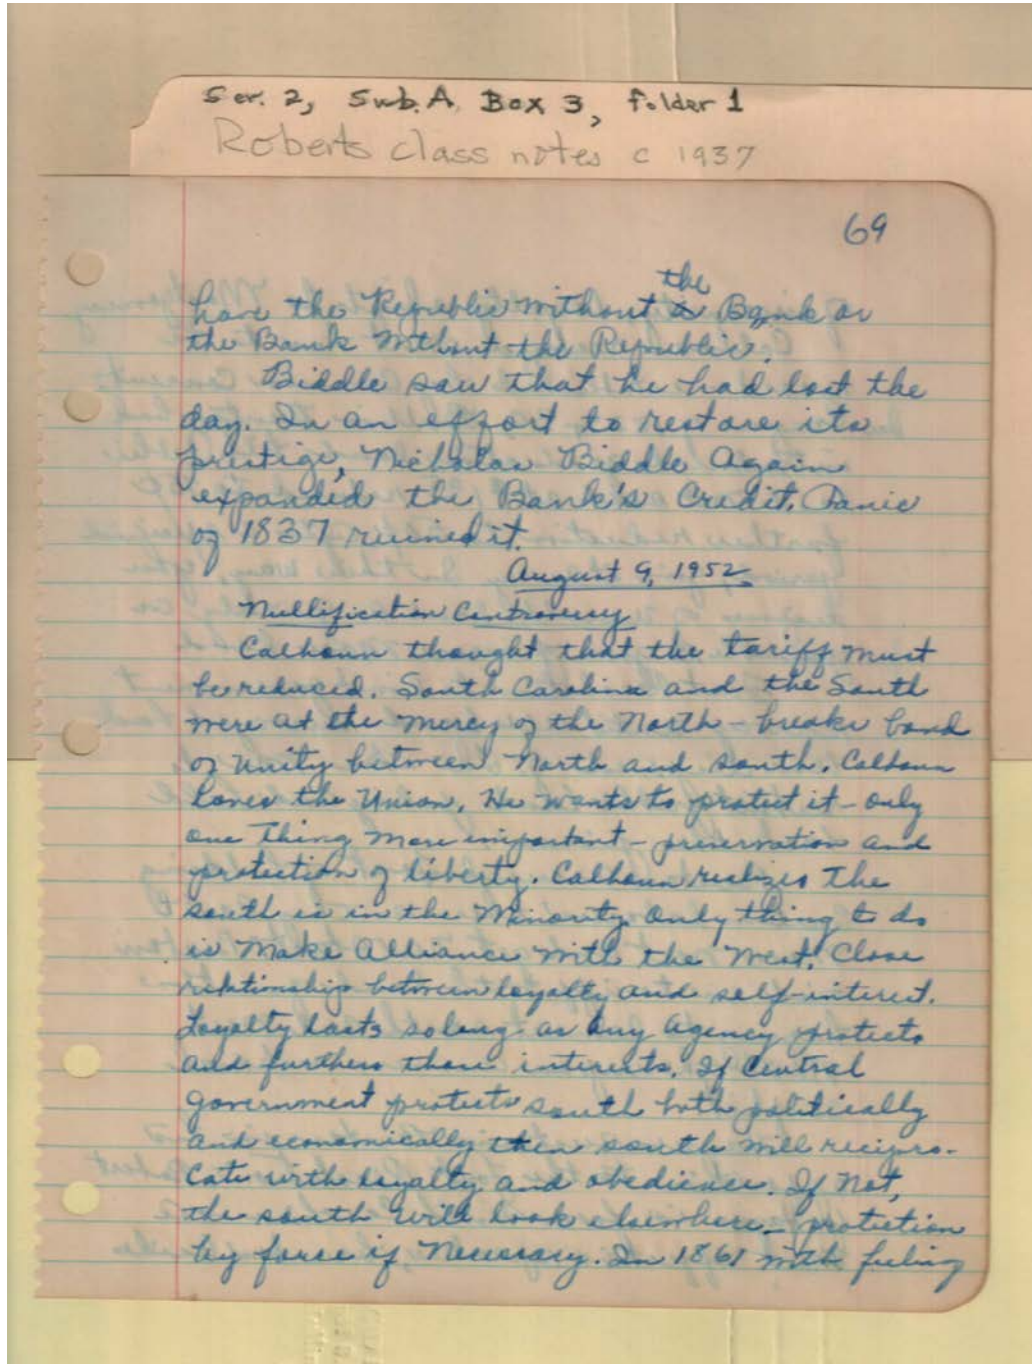 Ser. 2, Sub. A Box 3, folder 1
Roberts class notes c 1937
69
the
have the Republic without a Bank or
the Bank without the Republic.
Biddle saw that he had lost the
day. In an effort to restore its
prestige, Nicholas Biddle Again
expanded the Bank's Credit. Panic
of 1837 ruined it.
August 9, 1952
Nullification Controversy
Calhoun thought that the tariff must
be reduced. South Carolina and the South
were at the mercy of the North - breaks bond
of Unity between North and South. Calhoun
loves the Union. He wants to protect it - only
one thing more important - preservation and
protection of liberty. Calhoun realizes the
South is in the Minority only thing to do
is Make Alliance with the West. Close
relationship between loyalty and self-interest.
Loyalty lasts so long as any agency protects
and furthers those interests. If Central
government protects South both politically
and economically then South will recipro-
cate with loyalty and obedience. If Not,
the South will look elsewhere - protection
by force if Necessary. In 1861 with feeling